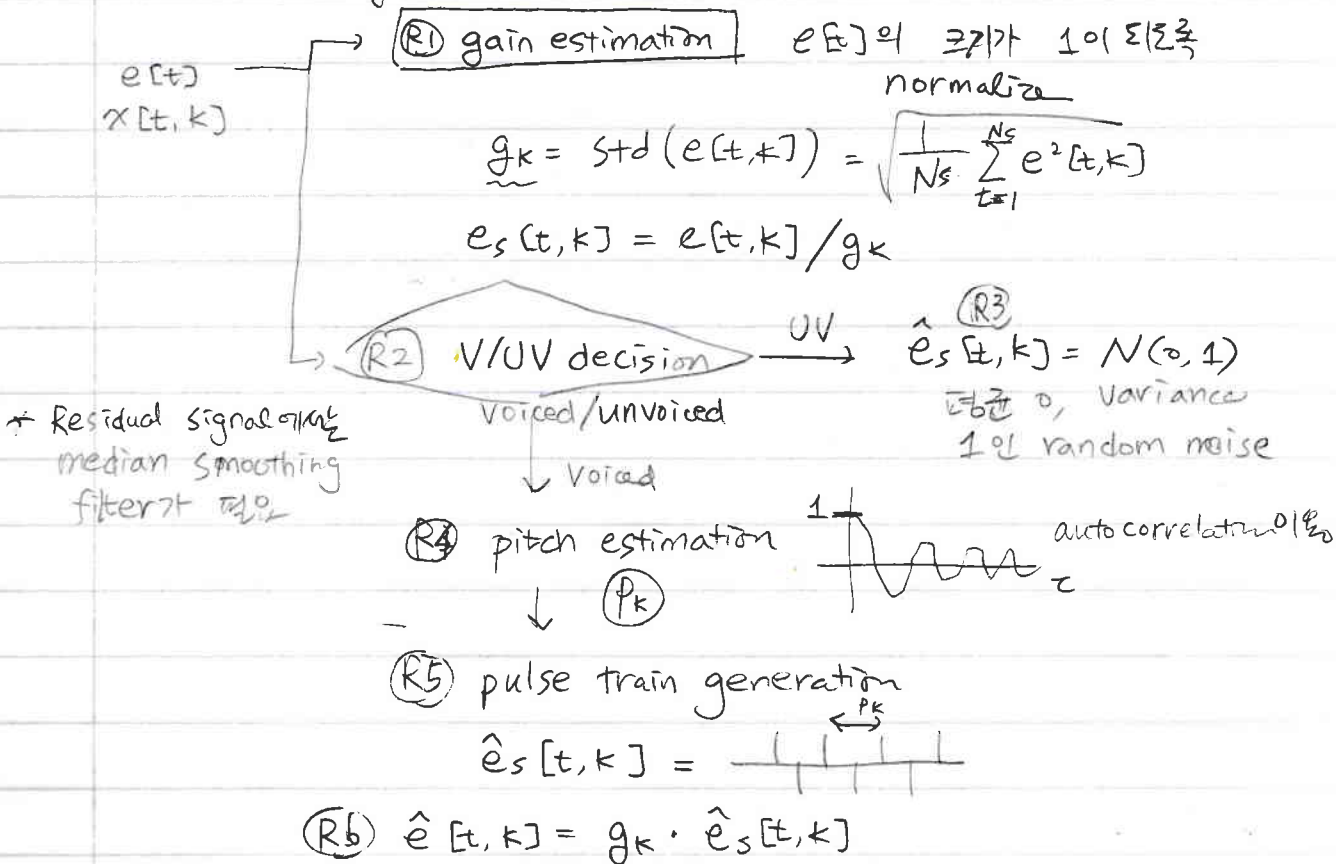 R1 gain estimation e[t]의 크기가 1이 되도록
normalize
e[t]
x[t, k]
g_k = std(e[t,k]) = √(1/Ns ∑_{t=1}^{Ns} e²[t,k])
e_s[t,k] = e[t,k]/g_k
R2 V/UV decision UV → R3 ê_s[t,k] = N(0,1)
voiced/unvoiced 평균 0, variance
1인 random noise
* Residual signal에서는
median smoothing
filter가 필요
↓ voiced
R4 pitch estimation 1 autocorrelation 이용
τ
↓ P_k
R5 pulse train generation
P_k
ê_s[t,k] =
R6 ê[t,k] = g_k · ê_s[t,k]